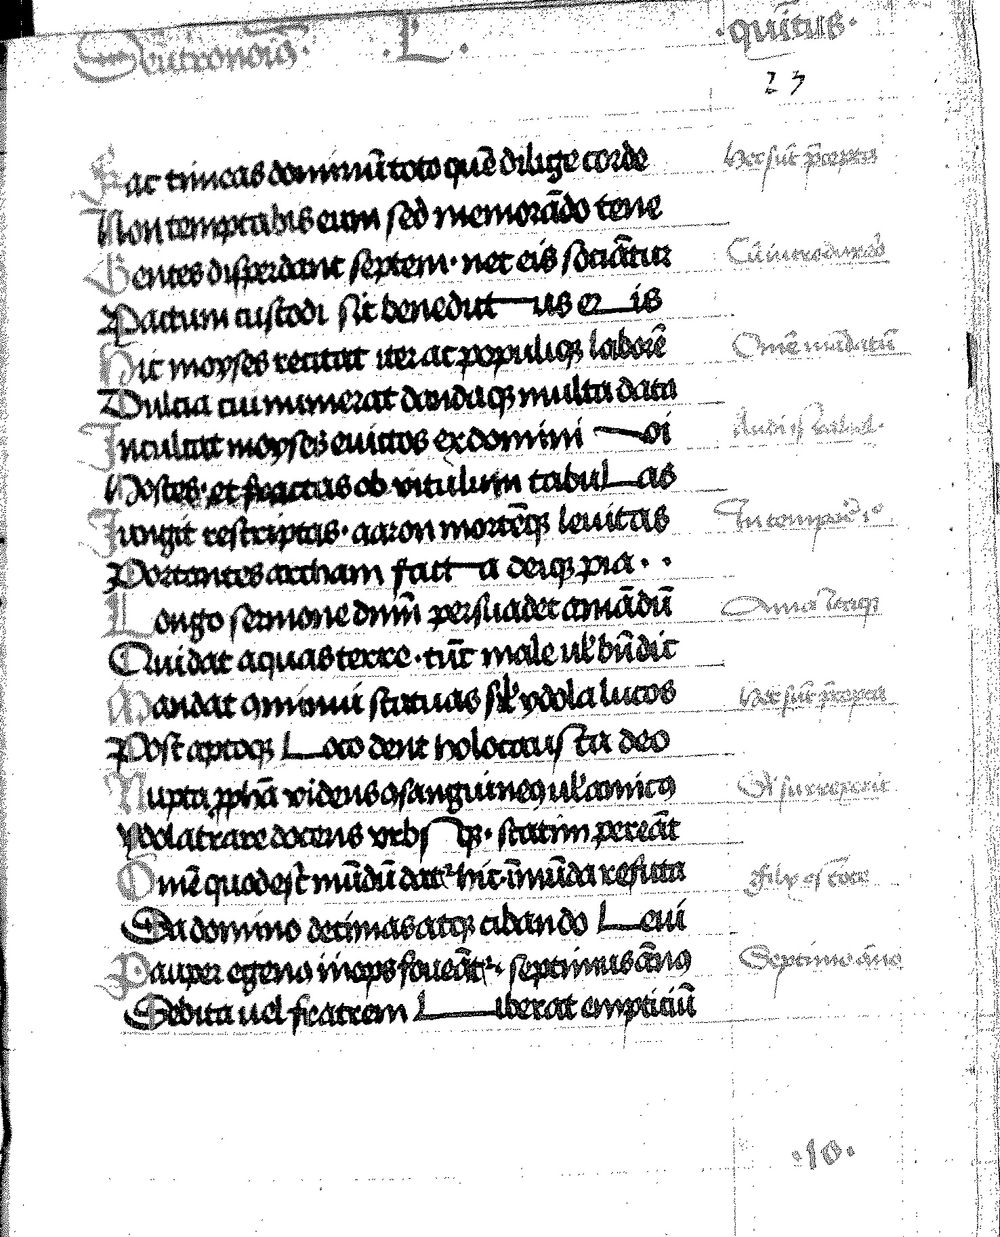 Deutronomiũ · L · quĩtus ·
23
Fac timeas dominũ toto quẽ dilige corde Hec sũt p̃cepta
Non temptabis eum sed memorãdo tene
Gentes disperdant septem · nec eis sociãtur Cũ introduxerit
Pactum custodi sic benedict us er is
Hic moyses recitat iter ac populiq; laborẽ Omẽ mãdatũ
Dulcia cui numerat dandaq; multa data
Inculcat moyses evictos ex domini oi Audi israhel ·
Hostes · et fractas ob vitulum tabul as
Iungit rescriptas · aaron mortẽq; levitas In tempore io
Portantes archam fact a deiq; pia · ·
Longo sermone dnm̃ persuadet amãdũ Ama itaq;
Qui dat aquas terre · tũc male vl̕ bñdic
Mandat ominui statuas sil̕ ydola lucos Hec sũt p̃cepta
Post aptoq; L oco dent holocausta deo
Nupta ppħã videns osanguineo ul̕ amico Si surrexerit
Ydolatrare docens urbs q; · statim pereãt
Omẽ quod est mũdũ datr̕ hic · ĩmũda refuta Filij estote
Da domino decimas atq; cibando L evi
Pauper egeno inops foveãtr̕ · septimus ãno Septimo ãno
Debita vel fratrem L iberat emptitiũ
· 10 ·